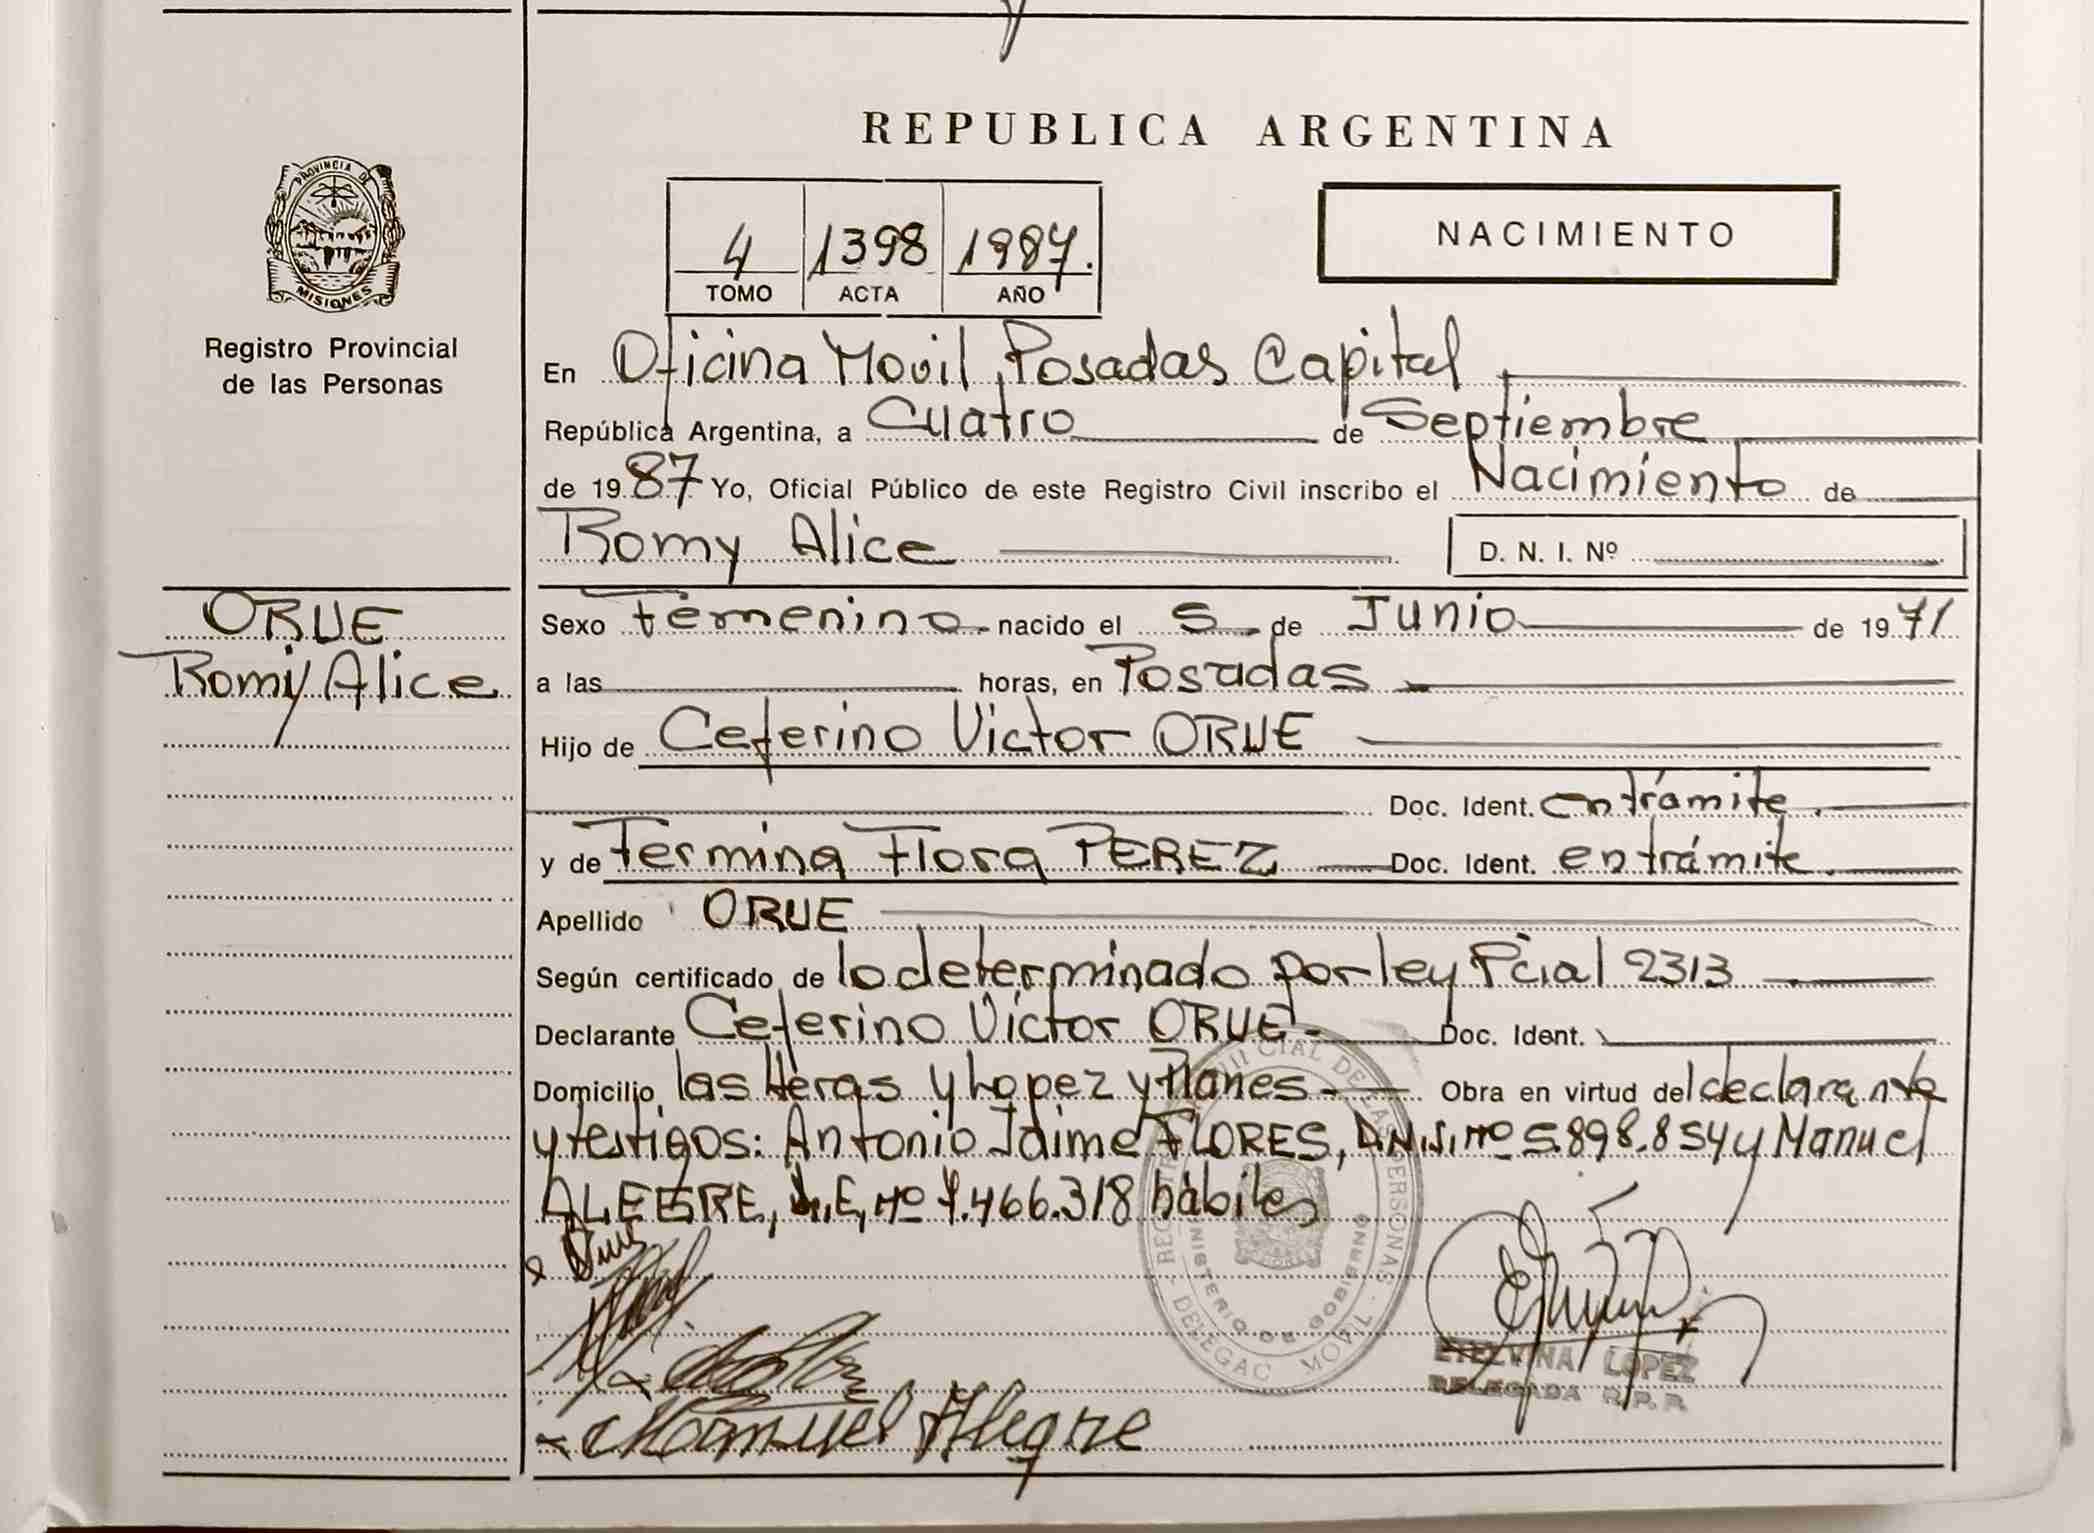 REPUBLICA ARGENTINA
PROVINCIA DE
MISIONES
Registro Provincial
de las Personas
4 1398 1987.
TOMO ACTA AÑO
NACIMIENTO
En Oficina Movil, Posadas Capital
República Argentina, a Cuatro de Septiembre
de 1987 Yo, Oficial Público de este Registro Civil inscribo el Nacimiento de
Romy Alice D. N. I. Nº
ORUE
Romy Alice
Sexo femenino nacido el 5 de Junio de 1971
a las horas, en Posadas
Hijo de Ceferino Victor ORUE
Doc. Ident. en trámite.
y de Fermina Flora PEREZ Doc. Ident. en trámite.
Apellido ORUE
Según certificado de lo determinado por ley Pcial 2313
Declarante Ceferino Victor ORUE Doc. Ident.
Domicilio las Heras y Lopez y Planes Obra en virtud del declarante
y testigos: Antonio Jaime FLORES, D.N.I. Nº 5.898.854 y Manuel
ALEGRE, L.E, Nº 7.466.318 hábiles
MINISTERIO DE GOBIERNO
DELEGAC MOVIL
ETELVINA LOPEZ
DELEGADA R.P.P.
Manuel Alegre